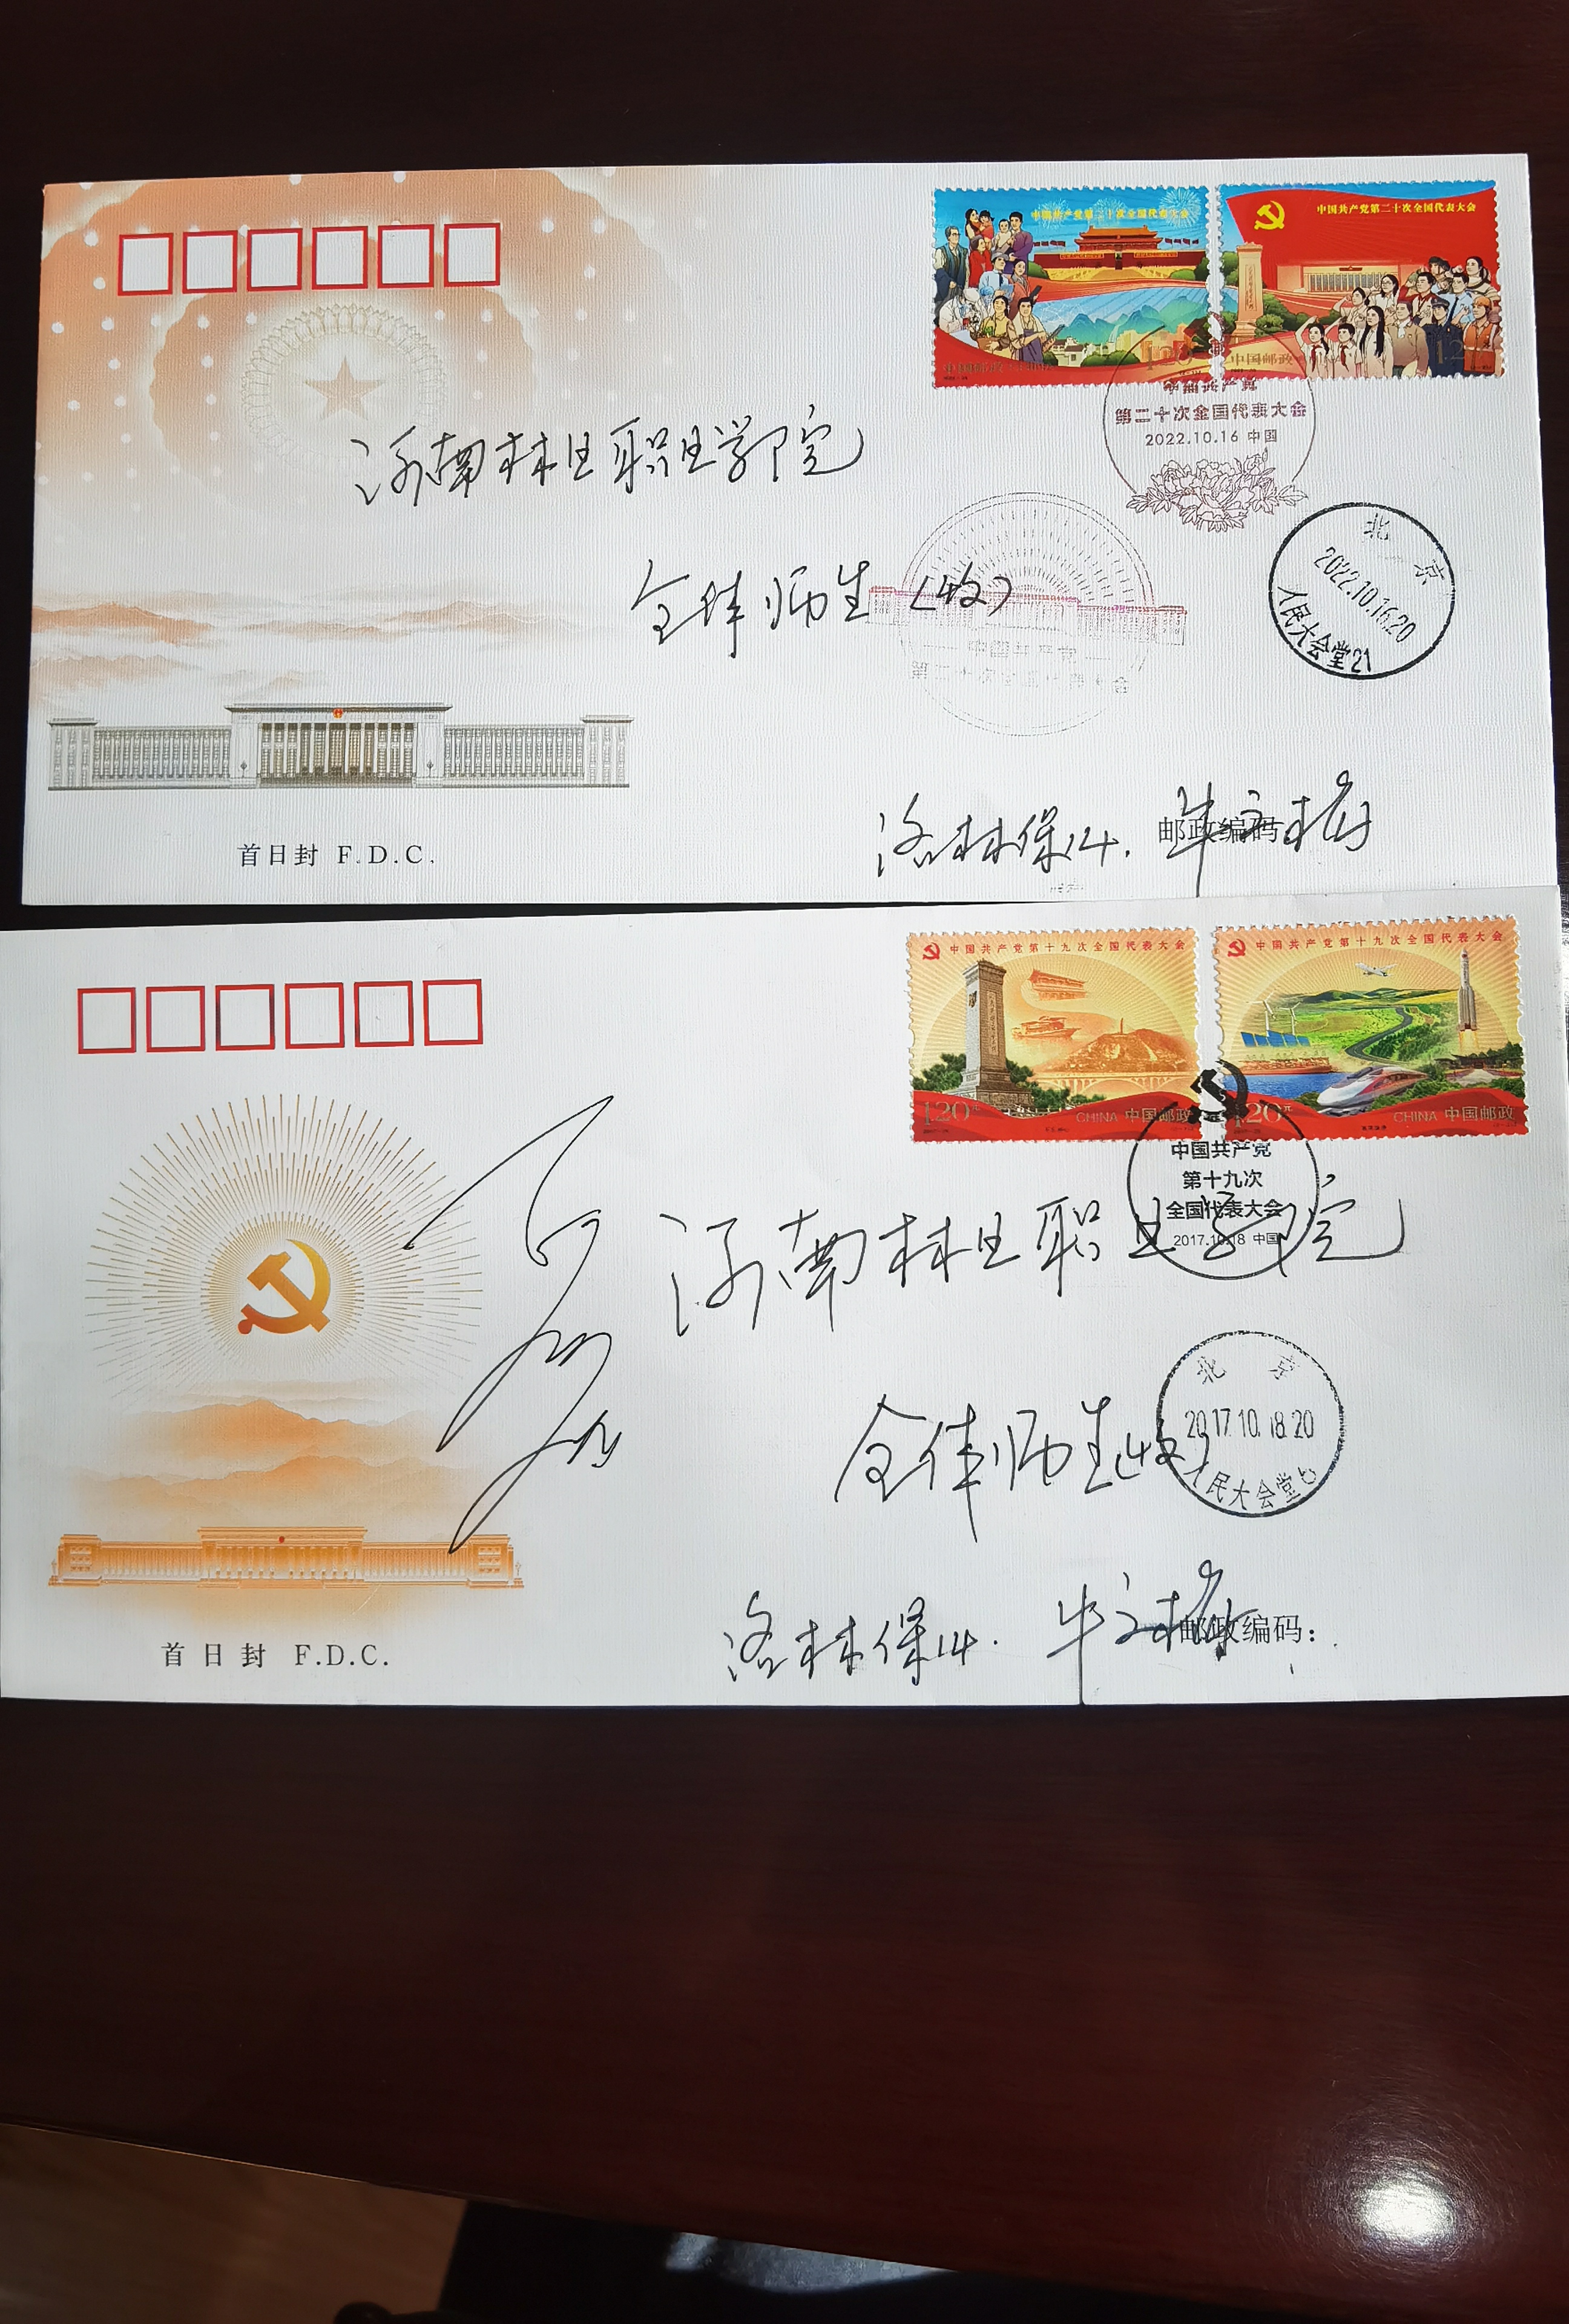 中国共产党第二十次全国代表大会
中国共产党第二十次全国代表大会
中国邮政
中国共产党
第二十次全国代表大会
2022.10.16 中国
河南林业职业学院
全体师生(收)
中国共产党
第二十次全国代表大会
北京
2022.10.16.20
人民大会堂21
洛林保14. 牛文梅
邮政编码
首日封 F.D.C.
中国共产党第十九次全国代表大会
1.20元
CHINA 中国邮政
中国共产党第十九次全国代表大会
1.20元
CHINA 中国邮政
中国共产党
第十九次
全国代表大会
2017.10.18 中国
河南林业职业学院
全体师生(收)
北京
2017.10.18.20
人民大会堂
洛林保14. 牛文梅
邮政编码:
首日封 F.D.C.